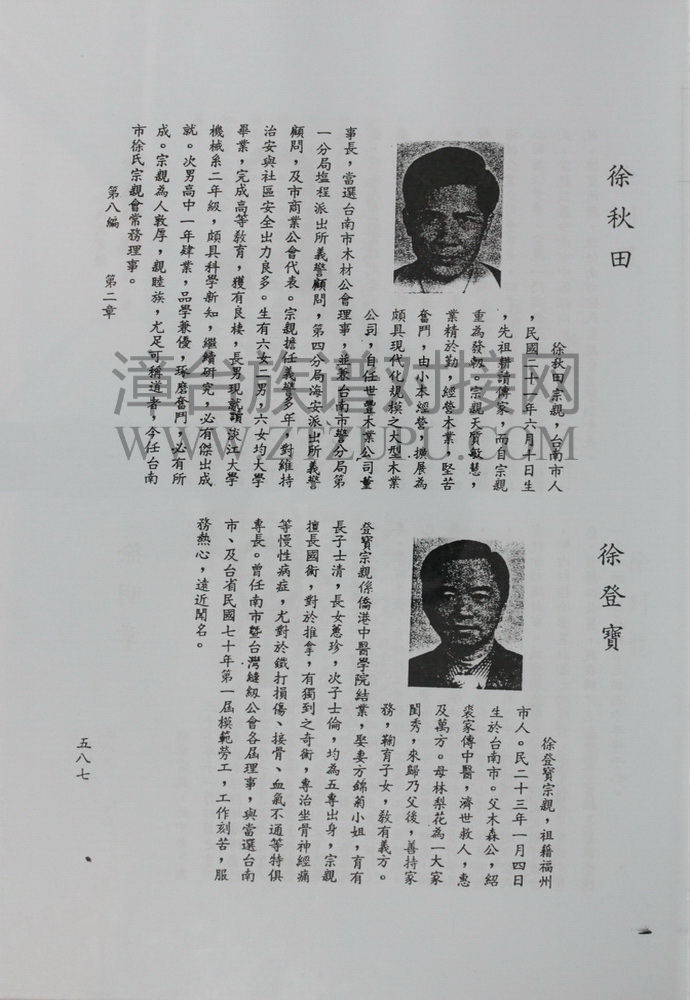 徐秋田
徐秋田宗親，台南市人
，民國二十八年六月十日生
，先祖耕讀傳家，而自宗親
重為發軔。宗親天資敏慧，
業精於勤，經營木業，堅苦
奮鬥，由小本經營，擴展為
頗具現代化規模之大型木業
公司，自任世豐木業公司董
事長，當選台南市木材公會理事，並兼台南市警分局第
一分局塩程派出所義警顧問，第四分局海安派出所義警
顧問，及市商業公會代表。宗親擔任義警多年，對維持
治安與社區安全出力良多。生有六女二男，六女均大學
畢業，完成高等敎育，獲有良棲，長男現就讀淡江大學
機械系二年級，頗具科學新知，繼續研究，必有傑出成
就。次男高中一年肄業，品學兼優，琢磨奮鬥，必有所
成。宗親為人敦厚，親睦族，尤足可稱道者，今任台南
市徐氏宗親會常務理事。
第八編 第二章
徐登寶
徐登寶宗親，祖籍福州
市人。民二十三年一月四日
生於台南市。父木森公，紹
裘家傳中醫，濟世救人，惠
及萬方。母林梨花為一大家
閨秀，來歸乃父後，善持家
務，鞠育子女，敎有義方。
登寶宗親係僑港中醫學院結業，娶妻方錦菊小姐，育有
長子士清，長女蕙珍，次子士倫，均為五專出身，宗親
擅長國術，對於推拿，有獨到之奇術，專治坐骨神經痛
等慢性病症，尤對於鐵打損傷、接骨、血氣不通等特俱
專長。曾任南市暨台灣縫紉公會各屆理事，與當選台南
市、及台省民國七十年第一屆模範勞工，工作刻苦，服
務熱心，遠近聞名。
五八七
漳台族谱对接网
WWW.ZTZUPU.COM